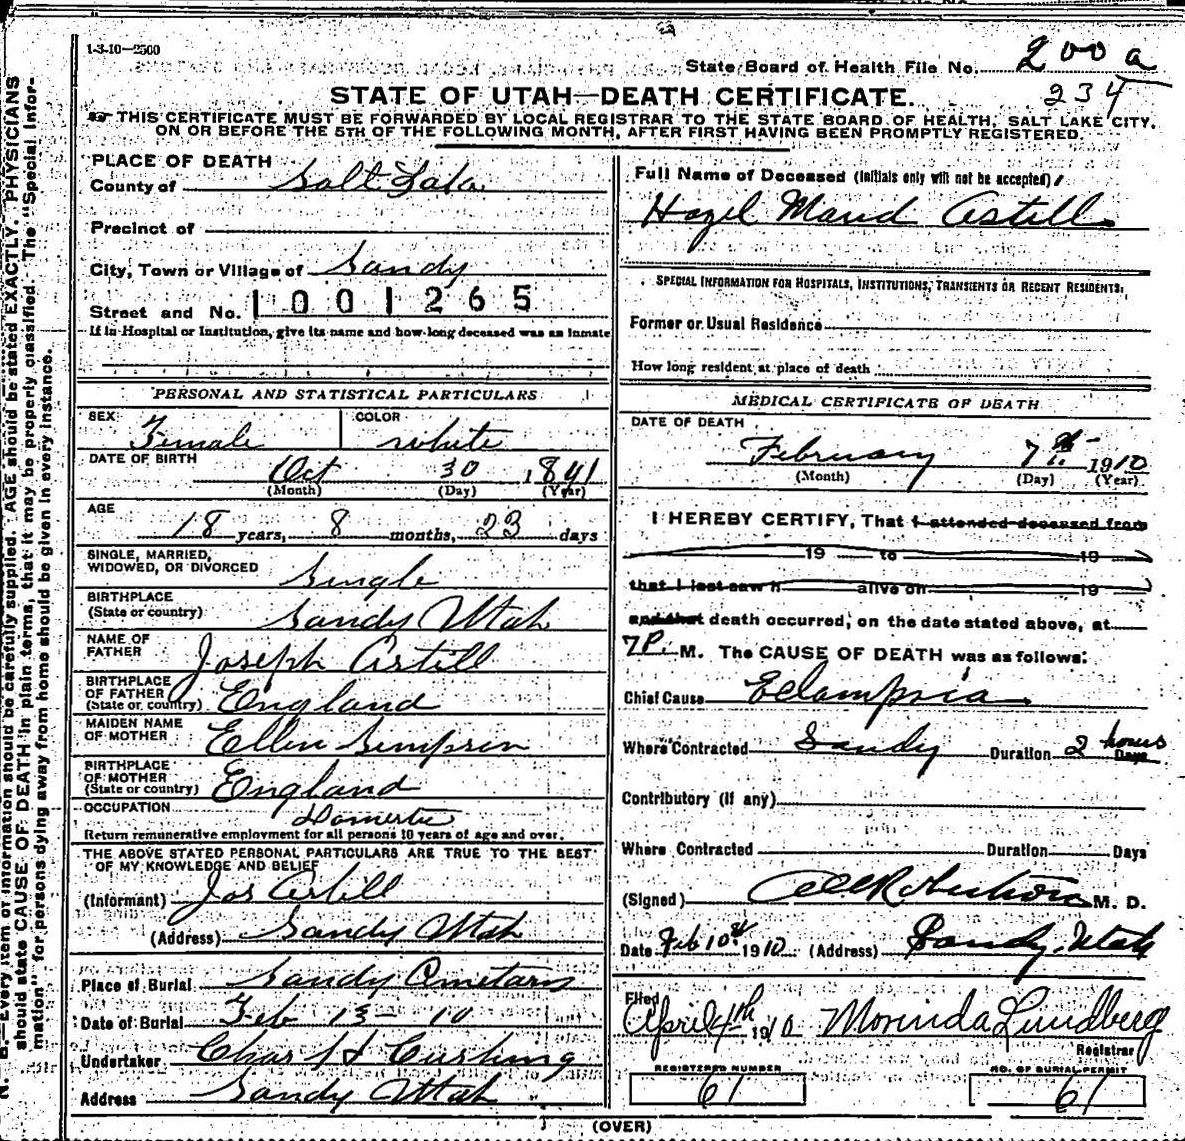 1-3-10—2500
State Board of Health File No. 200 a
234
STATE OF UTAH—DEATH CERTIFICATE.
THIS CERTIFICATE MUST BE FORWARDED BY LOCAL REGISTRAR TO THE STATE BOARD OF HEALTH, SALT LAKE CITY,
ON OR BEFORE THE 5TH OF THE FOLLOWING MONTH, AFTER FIRST HAVING BEEN PROMPTLY REGISTERED.
N. B.—Every item of information should be carefully supplied. AGE should be stated EXACTLY. PHYSICIANS
should state CAUSE OF DEATH in plain terms, that it may be properly classified. The "Special Infor-
mation" for persons dying away from home should be given in every instance.
PLACE OF DEATH
County of Salt Lake
Precinct of
City, Town or Village of Sandy
Street and No. 1001265
If in Hospital or Institution, give its name and how long deceased was an inmate
PERSONAL AND STATISTICAL PARTICULARS
SEX Female COLOR white
DATE OF BIRTH Oct 30 1891
(Month) (Day) (Year)
AGE 18 years, 8 months, 23 days
SINGLE, MARRIED,
WIDOWED, OR DIVORCED Single
BIRTHPLACE
(State or country) Sandy Utah
NAME OF
FATHER Joseph Astill
BIRTHPLACE
OF FATHER
(State or country) England
MAIDEN NAME
OF MOTHER Ellen Simpson
BIRTHPLACE
OF MOTHER
(State or country) England
OCCUPATION Domestic
Return remunerative employment for all persons 10 years of age and over.
THE ABOVE STATED PERSONAL PARTICULARS ARE TRUE TO THE BEST
OF MY KNOWLEDGE AND BELIEF
(Informant) Jos Astill
(Address) Sandy Utah
Place of Burial Sandy Cmetary
Date of Burial Feb 13 - 10
Undertaker Chas Cushing
Address Sandy Utah
Full Name of Deceased (Initials only will not be accepted)
Hazel Maud Astill
SPECIAL INFORMATION FOR HOSPITALS, INSTITUTIONS, TRANSIENTS OR RECENT RESIDENTS:
Former or Usual Residence
How long resident at place of death
MEDICAL CERTIFICATE OF DEATH
DATE OF DEATH
February 7th 1910
(Month) (Day) (Year)
I HEREBY CERTIFY, That I attended deceased from
19 to 19
that I last saw h alive on 19
and that death occurred, on the date stated above, at
7 P. M. The CAUSE OF DEATH was as follows:
Chief Cause Eclampsia
Where Contracted Sandy Duration 2 hours Days
Contributory (if any)
Where Contracted Duration Days
(Signed) Robertson M. D.
Date Feb 10th 1910 (Address) Sandy, Utah
Filed
April 4th 1910 Morinda Lundberg
Registrar
REGISTERED NUMBER 61 NO. OF BURIAL PERMIT 61
(OVER)